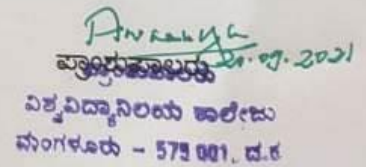 20.09.2021
ಪ್ರಾಂಶುಪಾಲರು
ವಿಶ್ವವಿದ್ಯಾನಿಲಯ ಕಾಲೇಜು
ಮಂಗಳೂರು - 575 001, ದ.ಕ